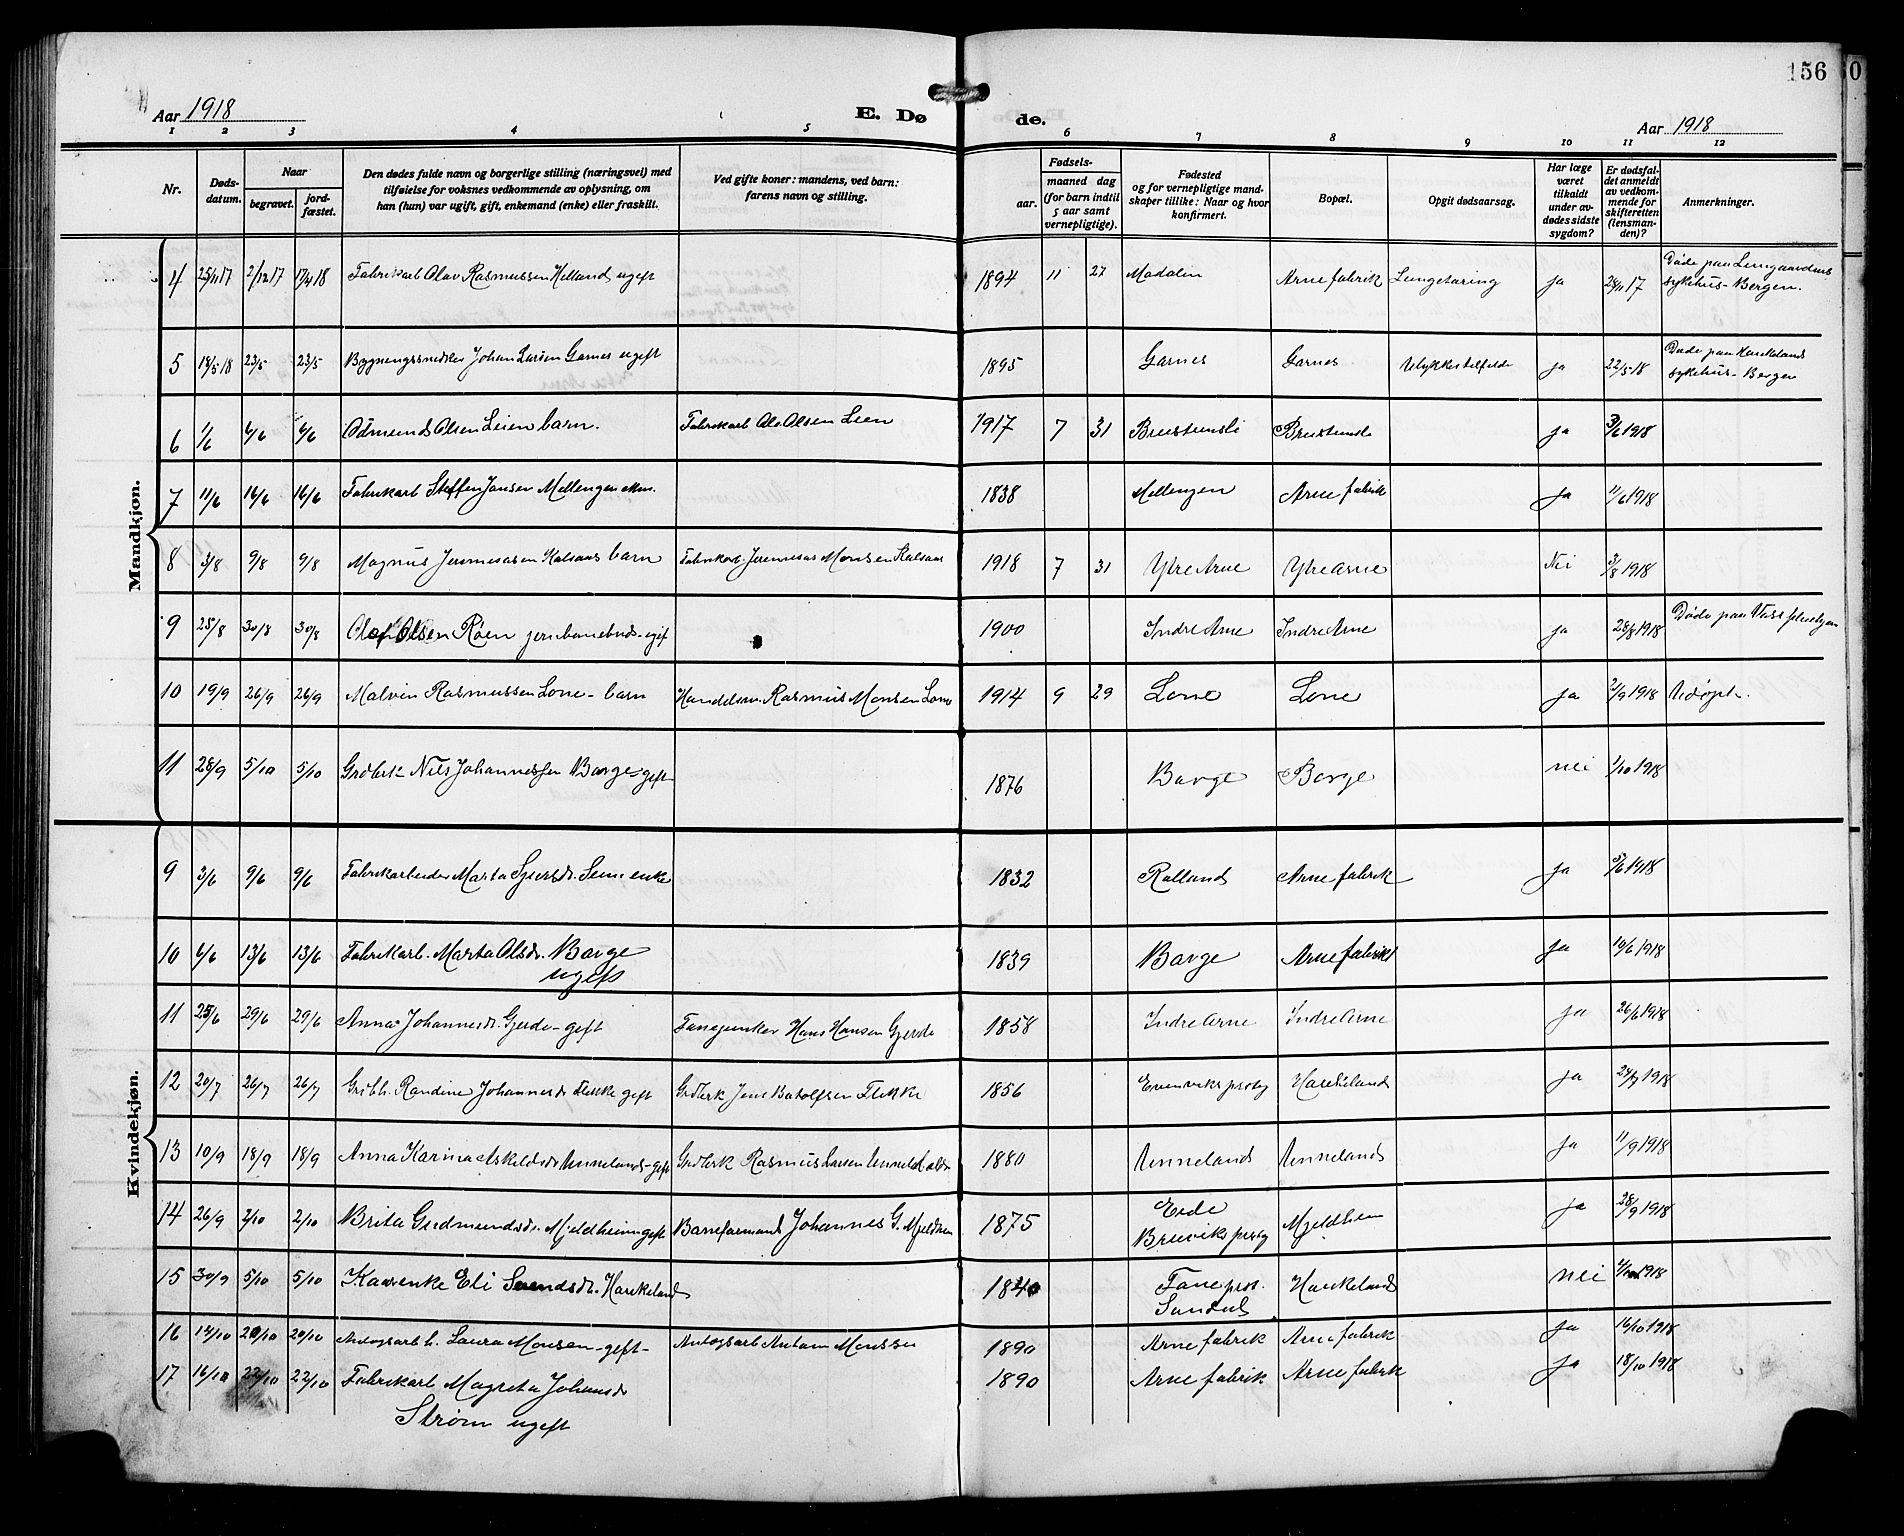 156
0
Aar 1918
E. Dø
de.
Aar 1918
1 2 3 4 5 6 7 8 9 10 11 12
Nr.
Døds-
datum.
Naar
begravet.
jord-
fæstet.
Den dødes fulde navn og borgerlige stilling (næringsvei) med
tilføielse for voksnes vedkommende av oplysning, om
han (hun) var ugift, gift, enkemand (enke) eller fraskilt.
Ved gifte koner: mandens, ved barn:
farens navn og stilling.
Fødsels-
aar.
maaned dag
(for barn indtil
5 aar samt
vernepligtige).
Fødested
og for vernepligtige mand-
skaper tillike: Naar og hvor
konfirmert.
Bopæl.
Opgit dødsaarsag.
Har læge
været
tilkaldt
under av-
dødes sidste
sygdom?
Er dødsfal-
det anmeldt
av vedkom-
mende for
skifteretten
(lensman-
den)?
Anmerkninger.
Mandkjøn.
4 25/11 17 2/12 17 17/4 18 Fabrikarb Olav Rasmussen Helland ugift 1894 11 27 Madalen Arne fabrik Lungetæring ja 28/11 17 Døde paa Lungaardens
sykehus - Bergen.
5 18/5 18 23/5 23/5 Bygningssnedker Johan Larsen Garnes ugift 1895 Garnes Garnes Ulykkestilfelde ja 22/5 18 Døde paa Haukelands
sykehus - Bergen
6 1/6 6/6 6/6 Odmund Olsen Leien barn. Fabrikarb Ole Olsen Leien 1917 7 31 Brustunsli Brustunsli ja 3/6 1918
7 11/6 16/6 16/6 Fabrikarb Steffen Jansen Mellingen 1838 Mellingen Arne fabrik ja 11/6 1918
8 3/8 9/8 9/8 Magnus Jeremiasen Kalsaas barn Fabrikarb. Jeremias Monsen Kalsaas 1918 7 31 Ytre Arne Ytre Arne Nei 3/8 1918
9 25/8 30/8 30/8 Olaf Olsen Røen jernbanebud - ugif 1900 Indre Arne Indre Arne ja 28/8 1918 Døde paa Voss
10 19/9 26/9 26/9 Malvin Rasmussen Lone - barn Handelsm. Rasmus Monsen Lone 1914 9 29 Lone Lone ja 21/9 1918 Udøpt.
11 28/9 5/10 5/10 Grdbrk Nils Johannessen Borge - gift 1876 Borge Borge nei 1/10 1918
Kvindekjøn.
9 3/6 9/6 9/6 Fabrikarbeider Marta Sjursdr. enke 1832 Rolland Arne fabrik ja 5/6 1918
10 6/6 13/6 13/6 Fabrikarb. Marta Olsdr. Borge
ugift 1839 Borge Arne fabrik ja 10/6 1918
11 25/6 29/6 29/6 Anna Johannesdr. Gjerde - gift Hans Hansen Gjerde 1858 Indre Arne Indre Arne ja 26/6 1918
12 20/7 26/7 26/7 Grdbh. Randine Johannesdr Flekke gift Grdbrk Jens Botolfsen Flekke 1856 Evenviks prstg Haukeland ja 24/7 1918
13 10/9 18/9 18/9 Anna Karina Askildsdr Unneland - gift Grdbrk Rasmus Larsen Unneland 1880 Unneland Unneland ja 11/9 1918
14 26/9 2/10 2/10 Brita Gudmundsdr. Mjeldheim gift Baneformand Johannes G. Mjeldheim 1875 Eide
Bruviks prstg Mjeldhem ja 28/9 1918
15 30/9 5/10 5/10 Kaarenke Eli Haukeland 1840 Fane prst.
Sandal Haukeland nei 1918
16 14/10 20/10 20/10 Anlegsarb h. Laura Monsen - gift - Anlegsarb Antam Monssen 1890 Arne fabrik Arne fabrik ja 16/10 1918
17 16/10 22/10 22/10 Fabrikarb Magreta Johansdr
Strøm ugift 1890 Arne fabrik Arne fabrik ja 18/10 1918